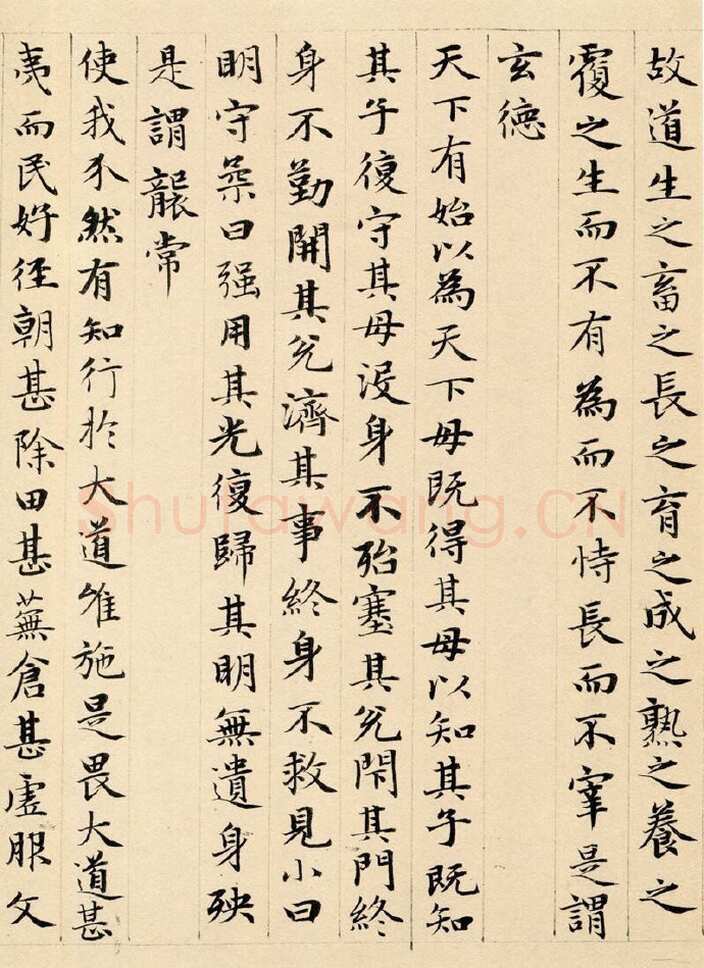 故道生之畜之長之育之成之熟之養之
覆之生而不有為而不恃長而不宰是謂
玄德
天下有始以為天下母既得其母以知其子既知
其子復守其母没身不殆塞其兌閇其門終
身不勤開其兌濟其事終身不救見小曰
明守柔曰强用其光復歸其明無遺身殃
是謂襲常
使我介然有知行於大道唯施是畏大道甚
夷而民好徑朝甚除田甚蕪倉甚虛服文
shufawang.CN